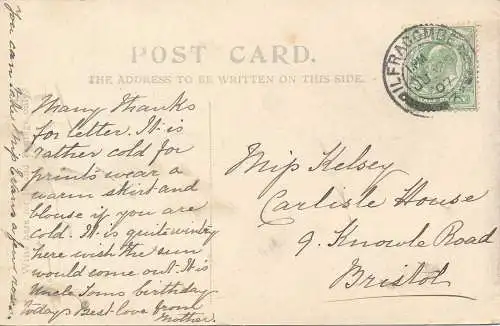 POST CARD.
THE ADDRESS TO BE WRITTEN ON THIS SIDE.
ILFRACOMBE
JU
07
Many thanks
for letter. It is
rather cold for
prints wear a
warm skirt and
blouse if you are
cold. It is quite wintry
here wish the sun
would come out. It is
Uncle Toms birthday
today. Best love from
Mother.
You can take Miss Evans a few roses.
Miss Kelsey
Carlisle House
9. Knowle Road
Bristol